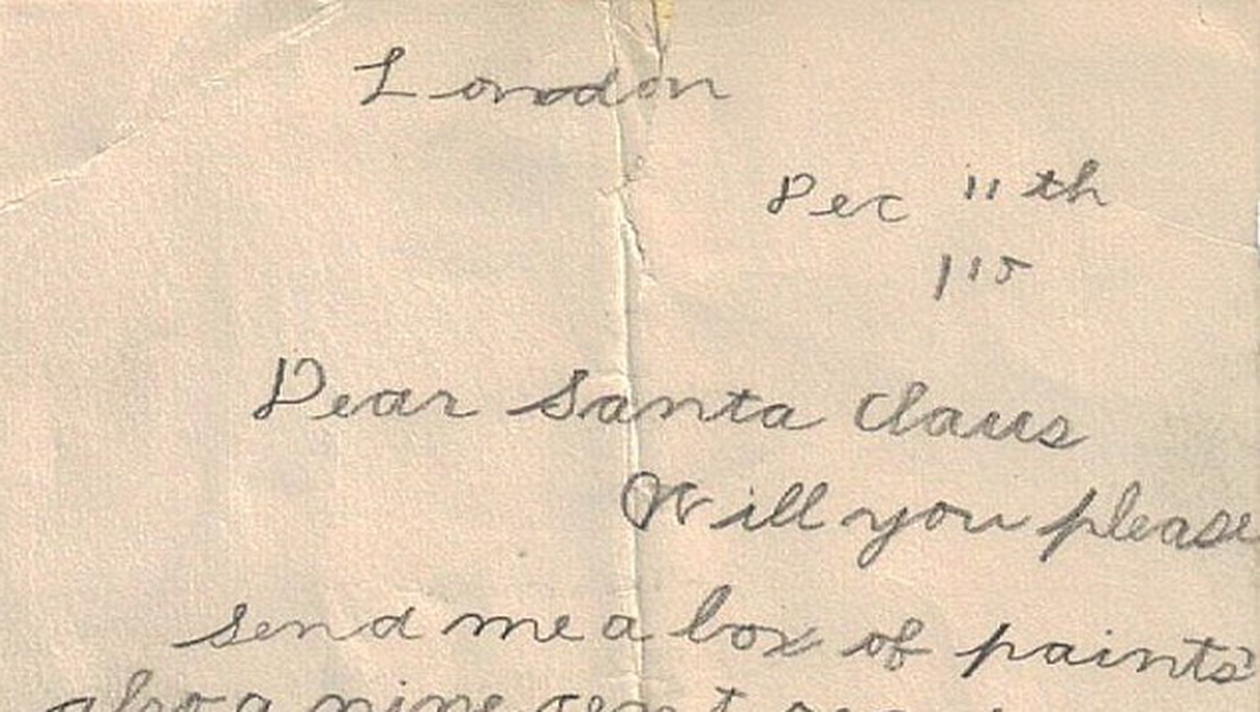 London
Dec 11th
1115
Dear Santa Claus
Will you please
send me a box of paints
also a nine cent